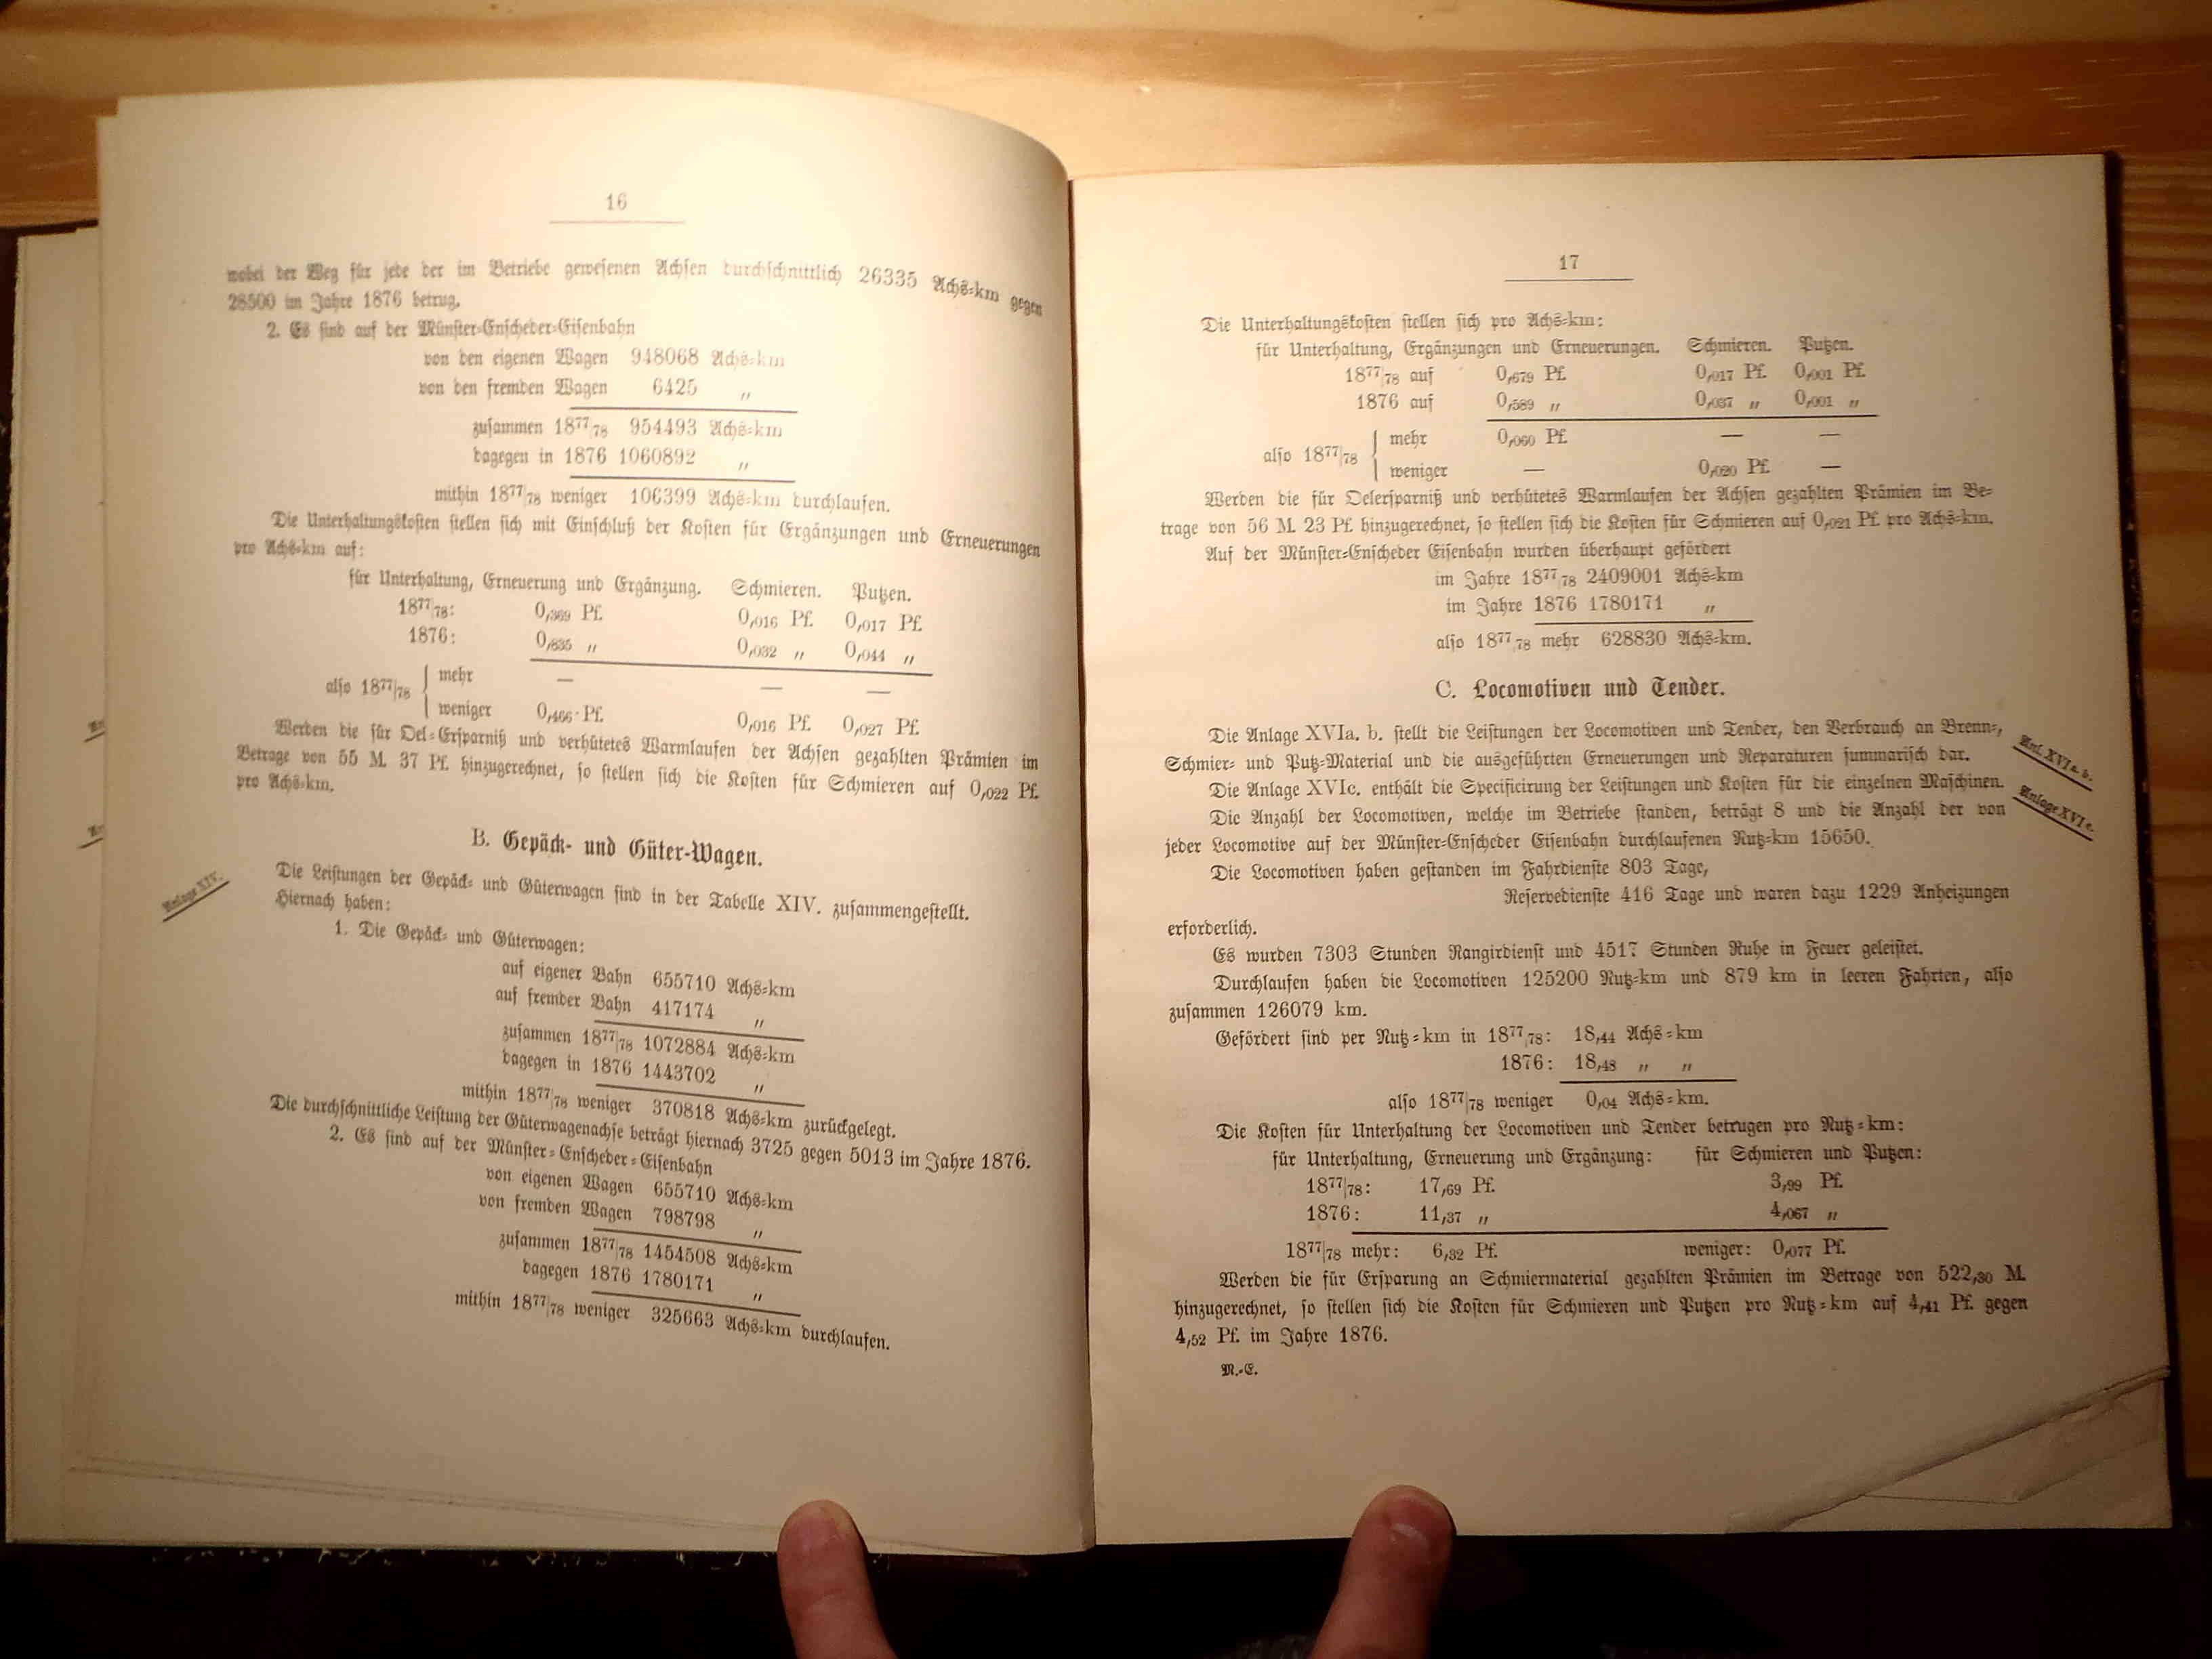 16
wobei der Weg für jede der im Betriebe gewesenen Achsen durchschnittlich 26335 Achs-km gegen
28500 im Jahre 1876 betrug.
2. Es sind auf der Münster-Enscheder-Eisenbahn
von den eigenen Wagen 948068 Achs-km
von den fremden Wagen 6425 "
zusammen 1877/78 954493 Achs-km
dagegen in 1876 1060892 "
mithin 1877/78 weniger 106399 Achs-km durchlaufen.
Die Unterhaltungskosten stellen sich mit Einschluß der Kosten für Ergänzungen und Erneuerungen
pro Achs-km auf:
für Unterhaltung, Erneuerung und Ergänzung. Schmieren. Putzen.
1877/78: 0,369 Pf. 0,016 Pf. 0,017 Pf.
1876: 0,835 " 0,032 " 0,044 "
also 1877/78 { mehr — — —
weniger 0,466 Pf. 0,016 Pf. 0,027 Pf.
Werden die für Oel-Ersparniß und verhütetes Warmlaufen der Achsen gezahlten Prämien im
Betrage von 55 M. 37 Pf. hinzugerechnet, so stellen sich die Kosten für Schmieren auf 0,022 Pf.
pro Achs-km.
B. Gepäck- und Güter-Wagen.
Anlage XIV.
Die Leistungen der Gepäck- und Güterwagen sind in der Tabelle XIV. zusammengestellt.
Hiernach haben:
1. Die Gepäck- und Güterwagen:
auf eigener Bahn 655710 Achs-km
auf fremder Bahn 417174 "
zusammen 1877/78 1072884 Achs-km
dagegen in 1876 1443702 "
mithin 1877/78 weniger 370818 Achs-km zurückgelegt.
Die durchschnittliche Leistung der Güterwagenachse beträgt hiernach 3725 gegen 5013 im Jahre 1876.
2. Es sind auf der Münster-Enscheder-Eisenbahn
von eigenen Wagen 655710 Achs-km
von fremden Wagen 798798 "
zusammen 1877/78 1454508 Achs-km
dagegen 1876 1780171 "
mithin 1877/78 weniger 325663 Achs-km durchlaufen.
17
Die Unterhaltungskosten stellen sich pro Achs-km:
für Unterhaltung, Ergänzungen und Erneuerungen. Schmieren. Putzen.
1877/78 auf 0,679 Pf. 0,017 Pf. 0,001 Pf.
1876 auf 0,589 " 0,037 " 0,001 "
also 1877/78 { mehr 0,060 Pf. — —
weniger — 0,020 Pf. —
Werden die für Oelersparniß und verhütetes Warmlaufen der Achsen gezahlten Prämien im Be-
trage von 56 M. 23 Pf. hinzugerechnet, so stellen sich die Kosten für Schmieren auf 0,021 Pf. pro Achs-km.
Auf der Münster-Enscheder Eisenbahn wurden überhaupt gefördert
im Jahre 1877/78 2409001 Achs-km
im Jahre 1876 1780171 "
also 1877/78 mehr 628830 Achs-km.
C. Locomotiven und Tender.
Die Anlage XVIa. b. stellt die Leistungen der Locomotiven und Tender, den Verbrauch an Brenn-,
Anl. XVIa. b.
Schmier- und Putz-Material und die ausgeführten Erneuerungen und Reparaturen summarisch dar.
Die Anlage XVIc. enthält die Specificirung der Leistungen und Kosten für die einzelnen Maschinen.
Anlage XVIc.
Die Anzahl der Locomotiven, welche im Betriebe standen, beträgt 8 und die Anzahl der von
jeder Locomotive auf der Münster-Enscheder Eisenbahn durchlaufenen Nutz-km 15650.
Die Locomotiven haben gestanden im Fahrdienste 803 Tage,
Reservedienste 416 Tage und waren dazu 1229 Anheizungen
erforderlich.
Es wurden 7303 Stunden Rangirdienst und 4517 Stunden Ruhe in Feuer geleistet.
Durchlaufen haben die Locomotiven 125200 Nutz-km und 879 km in leeren Fahrten, also
zusammen 126079 km.
Gefördert sind per Nutz-km in 1877/78: 18,44 Achs-km
1876: 18,48 " "
also 1877/78 weniger 0,04 Achs-km.
Die Kosten für Unterhaltung der Locomotiven und Tender betrugen pro Nutz-km:
für Unterhaltung, Erneuerung und Ergänzung: für Schmieren und Putzen:
1877/78: 17,69 Pf. 3,99 Pf.
1876: 11,37 " 4,067 "
1877/78 mehr: 6,32 Pf. weniger: 0,077 Pf.
Werden die für Ersparung an Schmiermaterial gezahlten Prämien im Betrage von 522,30 M.
hinzugerechnet, so stellen sich die Kosten für Schmieren und Putzen pro Nutz-km auf 4,41 Pf. gegen
4,52 Pf. im Jahre 1876.
M.-E.